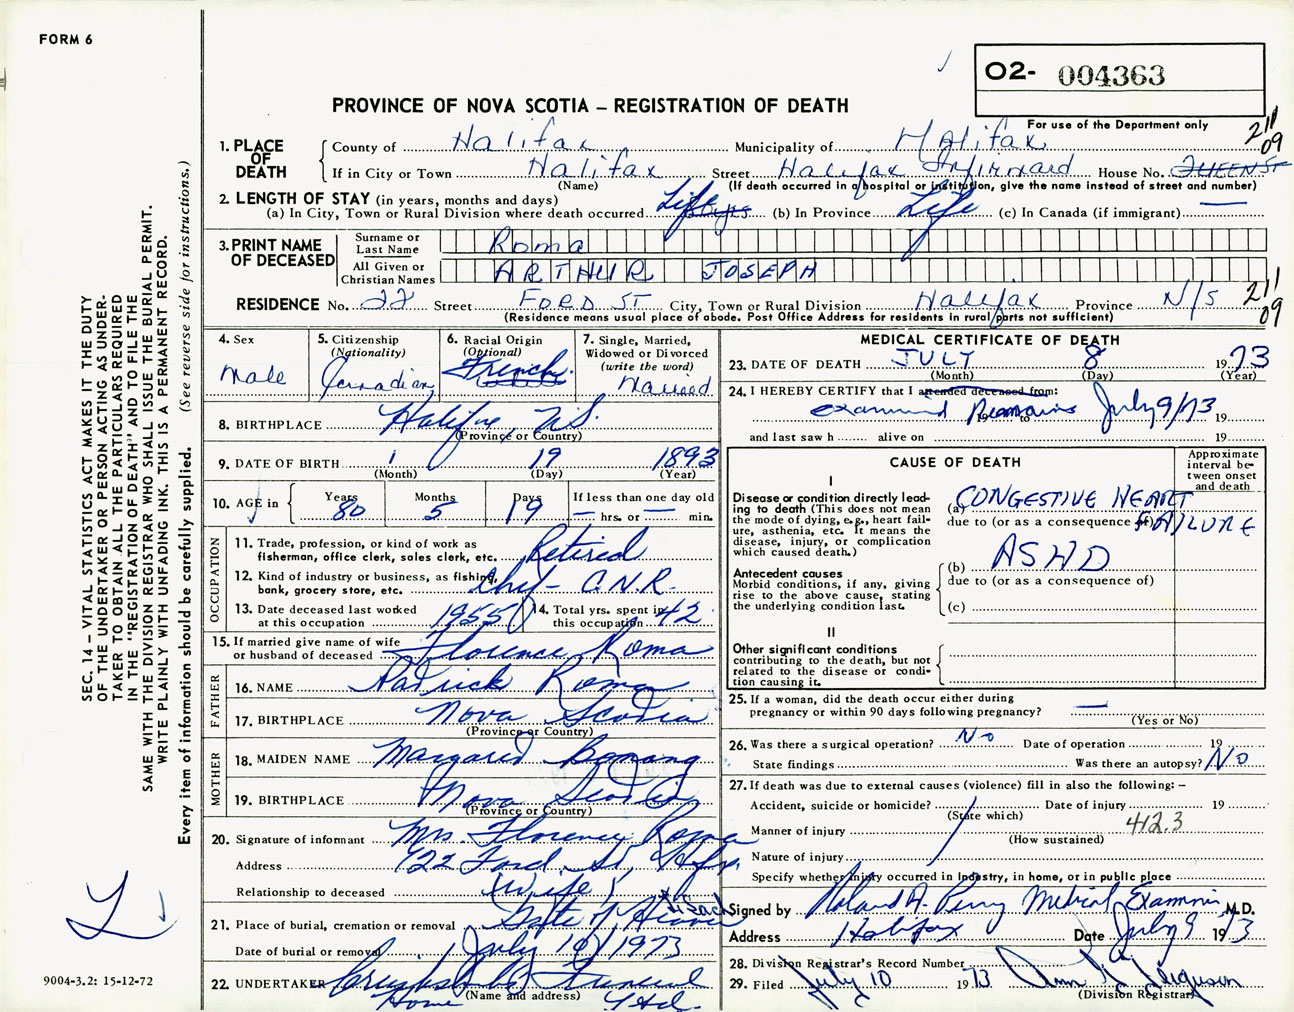 FORM 6
O2- 004363
PROVINCE OF NOVA SCOTIA – REGISTRATION OF DEATH
For use of the Department only
211
09
1. PLACE OF DEATH
County of Halifax Municipality of Halifax
If in City or Town Halifax Street Halifax Infirmary House No. QUEEN ST
(Name) (If death occurred in a hospital or institution, give the name instead of street and number)
2. LENGTH OF STAY (in years, months and days)
(a) In City, Town or Rural Division where death occurred Life (b) In Province Life (c) In Canada (if immigrant) —
3. PRINT NAME OF DECEASED
Surname or Last Name Roma
All Given or Christian Names ARTHUR JOSEPH
RESIDENCE No. 22 Street FORD ST City, Town or Rural Division Halifax Province N/S
211
09
(Residence means usual place of abode. Post Office Address for residents in rural parts not sufficient)
4. Sex
Male
5. Citizenship (Nationality)
Canadian
6. Racial Origin (Optional)
French
7. Single, Married, Widowed or Divorced (write the word)
Married
8. BIRTHPLACE Halifax, N.S.
(Province or Country)
9. DATE OF BIRTH 1 19 1893
(Month) (Day) (Year)
10. AGE in { Years 80 Months 5 Days 19 If less than one day old — hrs. or — min.
OCCUPATION
11. Trade, profession, or kind of work as fisherman, office clerk, sales clerk, etc. Retired
12. Kind of industry or business, as fishing, bank, grocery store, etc. C.N.R.
13. Date deceased last worked at this occupation 1955
14. Total yrs. spent in this occupation 42
15. If married give name of wife or husband of deceased Florence Roma
FATHER
16. NAME Patrick Roma
17. BIRTHPLACE Nova Scotia
(Province or Country)
MOTHER
18. MAIDEN NAME Margaret Bonang
19. BIRTHPLACE Nova Scotia
(Province or Country)
20. Signature of informant Mrs. Florence Roma
Address Ford St, Hfx.
Relationship to deceased Wife
21. Place of burial, cremation or removal Gate of Heaven Sack
Date of burial or removal July 10/1973
22. UNDERTAKER Cruikshanks Funeral
Home Ltd.
(Name and address)
MEDICAL CERTIFICATE OF DEATH
23. DATE OF DEATH JULY 8 1973
(Month) (Day) (Year)
24. I HEREBY CERTIFY that I attended deceased from:
examined Remains July 9/73
19 to 19
and last saw h alive on 19
CAUSE OF DEATH
Approximate interval between onset and death
I
Disease or condition directly leading to death (This does not mean the mode of dying, e.g., heart failure, asthenia, etc. It means the disease, injury, or complication which caused death.)
(a) CONGESTIVE HEART
due to (or as a consequence of) FAILURE
Antecedent causes
Morbid conditions, if any, giving rise to the above cause, stating the underlying condition last.
(b) ASHD
due to (or as a consequence of)
(c)
II
Other significant conditions
contributing to the death, but not related to the disease or condition causing it.
25. If a woman, did the death occur either during pregnancy or within 90 days following pregnancy? —
(Yes or No)
26. Was there a surgical operation? No Date of operation 19
State findings Was there an autopsy? No
27. If death was due to external causes (violence) fill in also the following: –
Accident, suicide or homicide? Date of injury 19
(State which)
Manner of injury 412.3
(How sustained)
Nature of injury
Specify whether injury occurred in industry, in home, or in public place
Signed by Roland A. Perry Medical Examiner M.D.
Address Halifax Date July 9 1973
28. Division Registrar's Record Number
29. Filed July 10 1973 Ferguson
(Division Registrar)
SEC. 14 – VITAL STATISTICS ACT MAKES IT THE DUTY
OF THE UNDERTAKER OR PERSON ACTING AS UNDER-
TAKER TO OBTAIN ALL THE PARTICULARS REQUIRED
IN THE "REGISTRATION OF DEATH" AND TO FILE THE
SAME WITH THE DIVISION REGISTRAR WHO SHALL ISSUE THE BURIAL PERMIT.
WRITE PLAINLY WITH UNFADING INK. THIS IS A PERMANENT RECORD.
Every item of information should be carefully supplied. (See reverse side for instructions.)
9004-3.2: 15-12-72